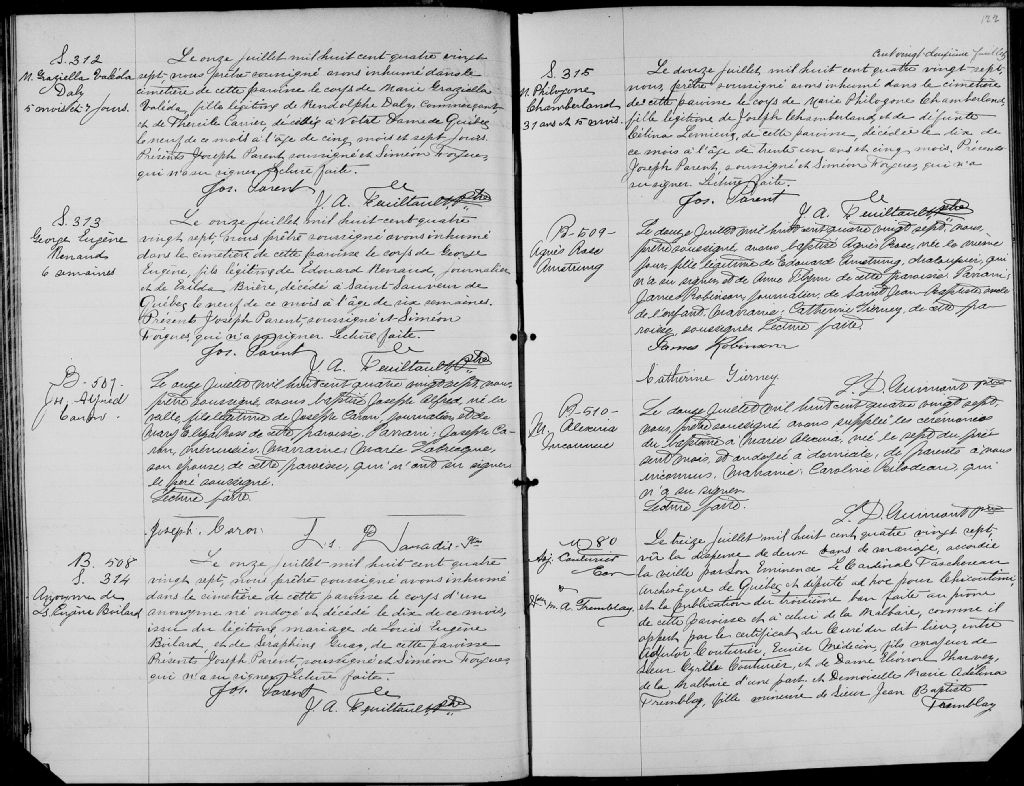 S. 312
M. Graziella Valéda
Daly
5 mois et 7 jours.
Le onze juillet mil huit cent quatre vingt
sept, nous prêtre soussigné avons inhumé dans le
cimetière de cette paroisse le corps de Marie Graziella
Valéda, fille légitime de Rendolphe Daly, Commerçant,
et de Carrier, décédée à Notre Dame de Québec
le neuf de ce mois à l'âge de cinq mois et sept jours.
Présents Joseph Parent, soussigné et Siméon Forgues,
qui n'a su signer. Lecture faite.
Jos. Parent
J. A. Feuiltault Ptre
S. 313
George Eugène
Renaud
6 semaines
Le onze juillet mil huit cent quatre
vingt sept, nous prêtre soussigné avons inhumé
dans le cimetière de cette paroisse le corps de George
Eugène, fils légitime de Edouard Renaud, journalier
et de Exilda Brière, décédé à Saint Sauveur de
Québec le neuf de ce mois à l'âge de six semaines.
Présents Joseph Parent, soussigné et Siméon
Forgues, qui n'a su signer. Lecture faite.
Jos. Parent
J. A. Feuiltault Ptre
B - 507 -
J. Alfred
Caron.
Le onze Juillet mil huit cent quatre vingt sept, nous,
prêtre soussigné, avons baptisé Joseph Alfred, né la
veille, fils légitime de Joseph Caron, journalier, et de
Mary Eliza Ross de cette paroisse. Parrain: Joseph Ca-
ron, menuisier, marraine: Marie Labrecque,
son épouse de cette paroisse, qui n'ont su signer
le père soussigné.
Lecture faite.
Joseph. Caron.
Paradis. Ptre
B. 508
S. 314
Anonyme de
Ls. Eugène Boilard
Le onze juillet mil huit cent quatre
vingt sept, nous prêtre soussigné avons inhumé
dans le cimetière de cette paroisse le corps d'un
anonyme né ondoyé et décédé le dix de ce mois,
issu du légitime mariage de Louis Eugène
Boilard, et de Séraphine Guay, de cette paroisse
Présents Joseph Parent, soussigné et Siméon Forgues,
qui n'a su signer. Lecture faite.
Jos. Parent
J. A. Feuiltault Ptre
122
Cent vingt deuxième feuillet
S. 315
M. Philogone
Chamberland
31 ans et 5 mois.
Le douze juillet, mil huit cent quatre vingt sept,
nous, prêtre soussigné avons inhumé dans le cimetière
de cette paroisse le corps de Marie Philogone Chamberland,
fille légitime de Joseph Chamberland, et de défunte
Célina Lemieux, de cette paroisse, décédée le dix de
ce mois à l'âge de trente un ans et cinq mois. Présents
Joseph Parent, soussigné et Siméon Forgues, qui n'a
su signer. Lecture faite.
Jos. Parent
J. A. Feuiltault Ptre
B - 509 -
Agnès Rose
Armstrong
Le douze Juillet mil huit cent quatre vingt sept, nous,
prêtre soussigné, avons baptisé Agnès Rose, née le même
jour, fille légitime de Edouard Armstrong, qui
n'a su signer, et de Anne Flynn de cette paroisse. Parrain:
James Robinson, journalier, de Saint Jean Baptiste, oncle
de l'enfant, marraine: Catherine Tierney, de cette pa-
roisse, soussignés. Lecture faite.
James Robinson
Catherine Tierney
L. D. Aumont Ptre
B - 510 -
M. Alexina
Inconnue
Le douze Juillet mil huit cent quatre vingt sept,
nous, prêtre soussigné avons suppléé les cérémonies
du baptême à Marie Alexina, née le sept du pré-
sent mois, et ondoyée à domicile, de parents à nous
inconnus. Marraine: Caroline Bilodeau, qui
n'a su signer.
Lecture faite.
L. D. Aumont Ptre
M 80
Couturier
et
M. A. Tremblay
Le treize juillet mil huit cent quatre vingt sept,
vu la dispense de deux bans de mariage, accordée
la veille par Son Eminence le Cardinal Taschereau
Archevêque de Québec, et député ad hoc pour Chicoutimi,
et la publication du troisième ban faite au prône
de cette paroisse et à celui de la Malbaie, comme il
appert par le certificat du Curé du dit lieu, entre
Couturier, Ecuier Médecin, fils majeur de
Sieur Cyrille Couturier, et de Dame Eléonore Harvey,
de la Malbaie d'une part, et Demoiselle Marie Adélina
Tremblay, fille mineure de Sieur Jean Baptiste
Tremblay